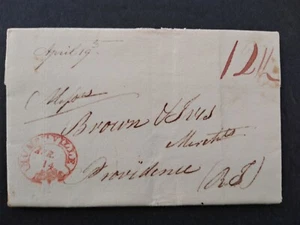 April 19th
12½
Messrs
Brown & Ives
Merchts
Providence
(R.I)
APR
14